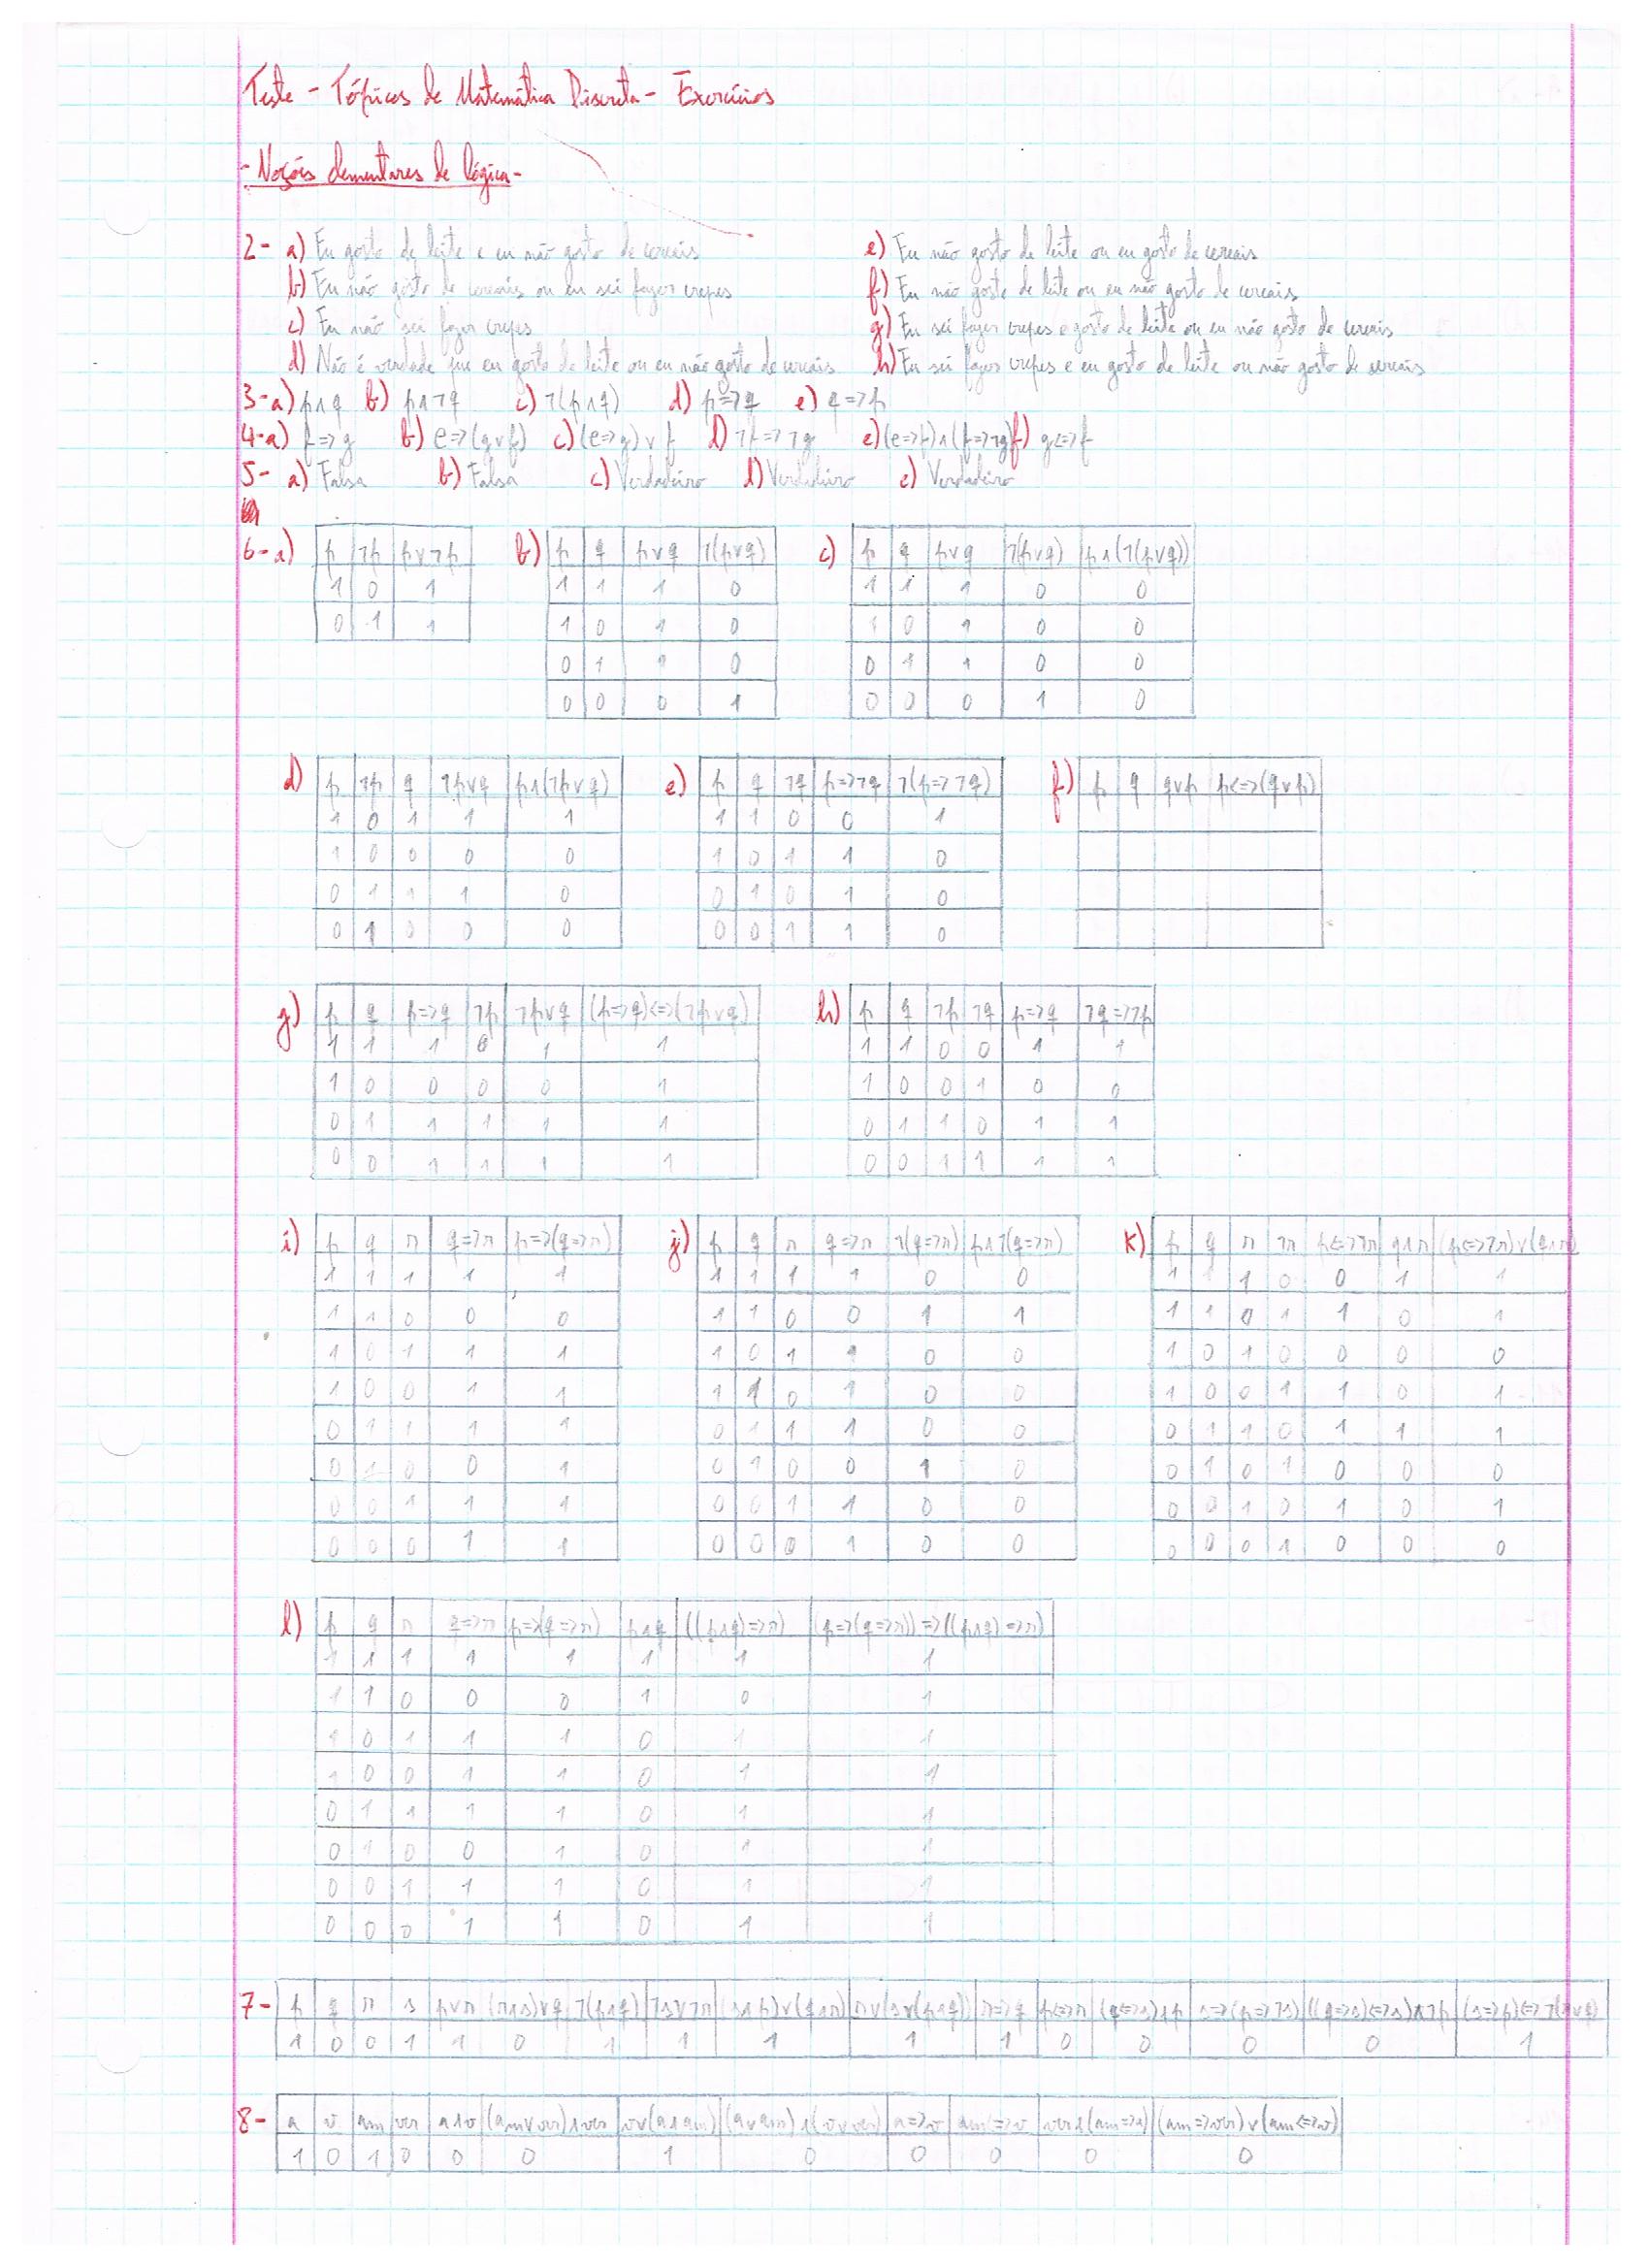 Teste - Tópicos de Matemática Discreta - Exercícios
- Noções elementares de lógica -
2- a) Eu gosto de leite e eu não gosto de cereais
b) Eu não gosto de cereais ou eu sei fazer crepes
c) Eu não sei fazer crepes
d) Não é verdade que eu gosto de leite ou eu não gosto de cereais
e) Eu não gosto de leite ou eu gosto de cereais
f) Eu não gosto de leite ou eu não gosto de cereais
g) Eu sei fazer crepes e gosto de leite ou eu não gosto de cereais
h) Eu sei fazer crepes e eu gosto de leite ou não gosto de cereais
3-a) p∧q b) p∧¬q c) ¬(p∧q) d) p=>q e) q=>p
4-a) f=>g b) e=>(g∨f) c) (e=>g)∨f d) ¬f=>¬g e) (e=>f)∧(f=>¬g) f) g<=>f
5- a) Falsa b) Falsa c) Verdadeiro d) Verdadeiro e) Verdadeiro
6-a) p ¬p p∨¬p
1 0 1
0 1 1
b) p q p∨q ¬(p∨q)
1 1 1 0
1 0 1 0
0 1 1 0
0 0 0 1
c) p q p∨q ¬(p∨q) p∧(¬(p∨q))
1 1 1 0 0
1 0 1 0 0
0 1 1 0 0
0 0 0 1 0
d) p ¬p q ¬p∨q p∧(¬p∨q)
1 0 1 1 1
1 0 0 0 0
0 1 1 1 0
0 1 0 0 0
e) p q ¬q p=>¬q ¬(p=>¬q)
1 1 0 0 1
1 0 1 1 0
0 1 0 1 0
0 0 1 1 0
f) p q q∨p p<=>(q∨p)
g) p q p=>q ¬p ¬p∨q (p=>q)<=>(¬p∨q)
1 1 1 0 1 1
1 0 0 0 0 1
0 1 1 1 1 1
0 0 1 1 1 1
h) p q ¬p ¬q p=>q ¬q=>¬p
1 1 0 0 1 1
1 0 0 1 0 0
0 1 1 0 1 1
0 0 1 1 1 1
i) p q r q=>r p=>(q=>r)
1 1 1 1 1
1 1 0 0 0
1 0 1 1 1
1 0 0 1 1
0 1 1 1 1
0 1 0 0 1
0 0 1 1 1
0 0 0 1 1
j) p q r q=>r ¬(q=>r) p∧¬(q=>r)
1 1 1 1 0 0
1 1 0 0 1 1
1 0 1 1 0 0
1 1 0 1 0 0
0 1 1 1 0 0
0 1 0 0 1 0
0 0 1 1 0 0
0 0 0 1 0 0
k) p q r ¬r p<=>¬r q∧r (p<=>¬r)∨(q∧r)
1 1 1 0 0 1 1
1 1 0 1 1 0 1
1 0 1 0 0 0 0
1 0 0 1 1 0 1
0 1 1 0 1 1 1
0 1 0 1 0 0 0
0 0 1 0 1 0 1
0 0 0 1 0 0 0
l) p q r q=>r p=>(q=>r) p∧q ((p∧q)=>r) (p=>(q=>r))=>((p∧q)=>r)
1 1 1 1 1 1 1 1
1 1 0 0 0 1 0 1
1 0 1 1 1 0 1 1
1 0 0 1 1 0 1 1
0 1 1 1 1 0 1 1
0 1 0 0 1 0 1 1
0 0 1 1 1 0 1 1
0 0 0 1 1 0 1 1
7- p q r s p∨r (r∧s)∨q ¬(p∧q) ¬s∨¬r (s∧p)∨(q∧r) r∨(s∨(p∧q)) r=>q p<=>r (q<=>s)∧p s=>(p=>¬s) ((q=>s)<=>s)∧¬p (s=>p)<=>¬(s∨q)
1 0 0 1 1 0 1 1 1 1 1 0 0 0 0 1
8- a v am ver a∧v (am∨ver)∧ver v∨(a∧am) (a∨am)∧(v∨ver) a=>v am<=>v ver∧(am=>a) (am=>ver)∨(am<=>v)
1 0 1 0 0 0 1 0 0 0 0 0